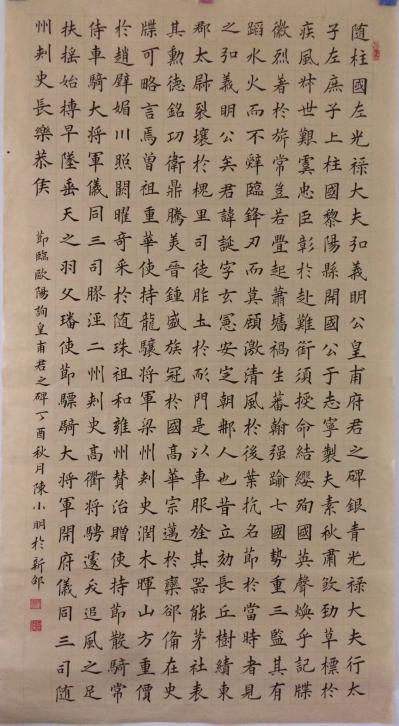 隨柱國左光禄大夫弘義明公皇甫府君之碑銀青光禄大夫行太
子左庶子上柱國黎陽縣開國公于志寧製夫素秋肅致勁草標於
疾風叔世艱虞忠臣彰於赴難銜須授命結纓殉國英聲煥乎記牒
徽烈著於旂常豈若舋起蕭墻禍生蕃翰强踰七國勢重三監其有
蹈水火而不辭臨鋒刃而莫顧激清風於後葉抗名節於當時者見
之弘義明公矣君諱誕字玄憲安定朝那人也昔立効長丘樹績東
郡太尉裂壤於槐里司徒胙土於耏門是以車服旌其器能茅社表
其勲德銘功衛鼎騰美晉鍾盛族冠於國高華宗邁於欒郤備在史
牒可略言焉曾祖重華使持龍驤將軍梁州刺史潤木暉山方重價
於趙璧媚川照闕曜奇采於隨珠祖和雍州贊治贈使持節散騎常
侍車騎大將軍儀同三司膠涇二州刺史高衢將騁遽夭追風之足
扶摇始搏早墜垂天之羽父璠使節驃騎大將軍開府儀同三司隨
州刺史長樂恭侯 節臨歐陽詢皇甫君之碑丁酉秋月陳小明於新邵